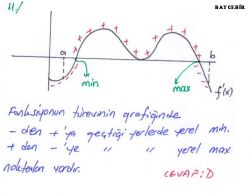 11/
BAYÇEBİR
a
b
min
max
f'(x)
Fonksiyonun türevinin grafiğinde
- den + 'ya geçtiği yerlerde yerel min.
+ dan - 'ye " " yerel max
noktaları vardır.
CEVAP: D